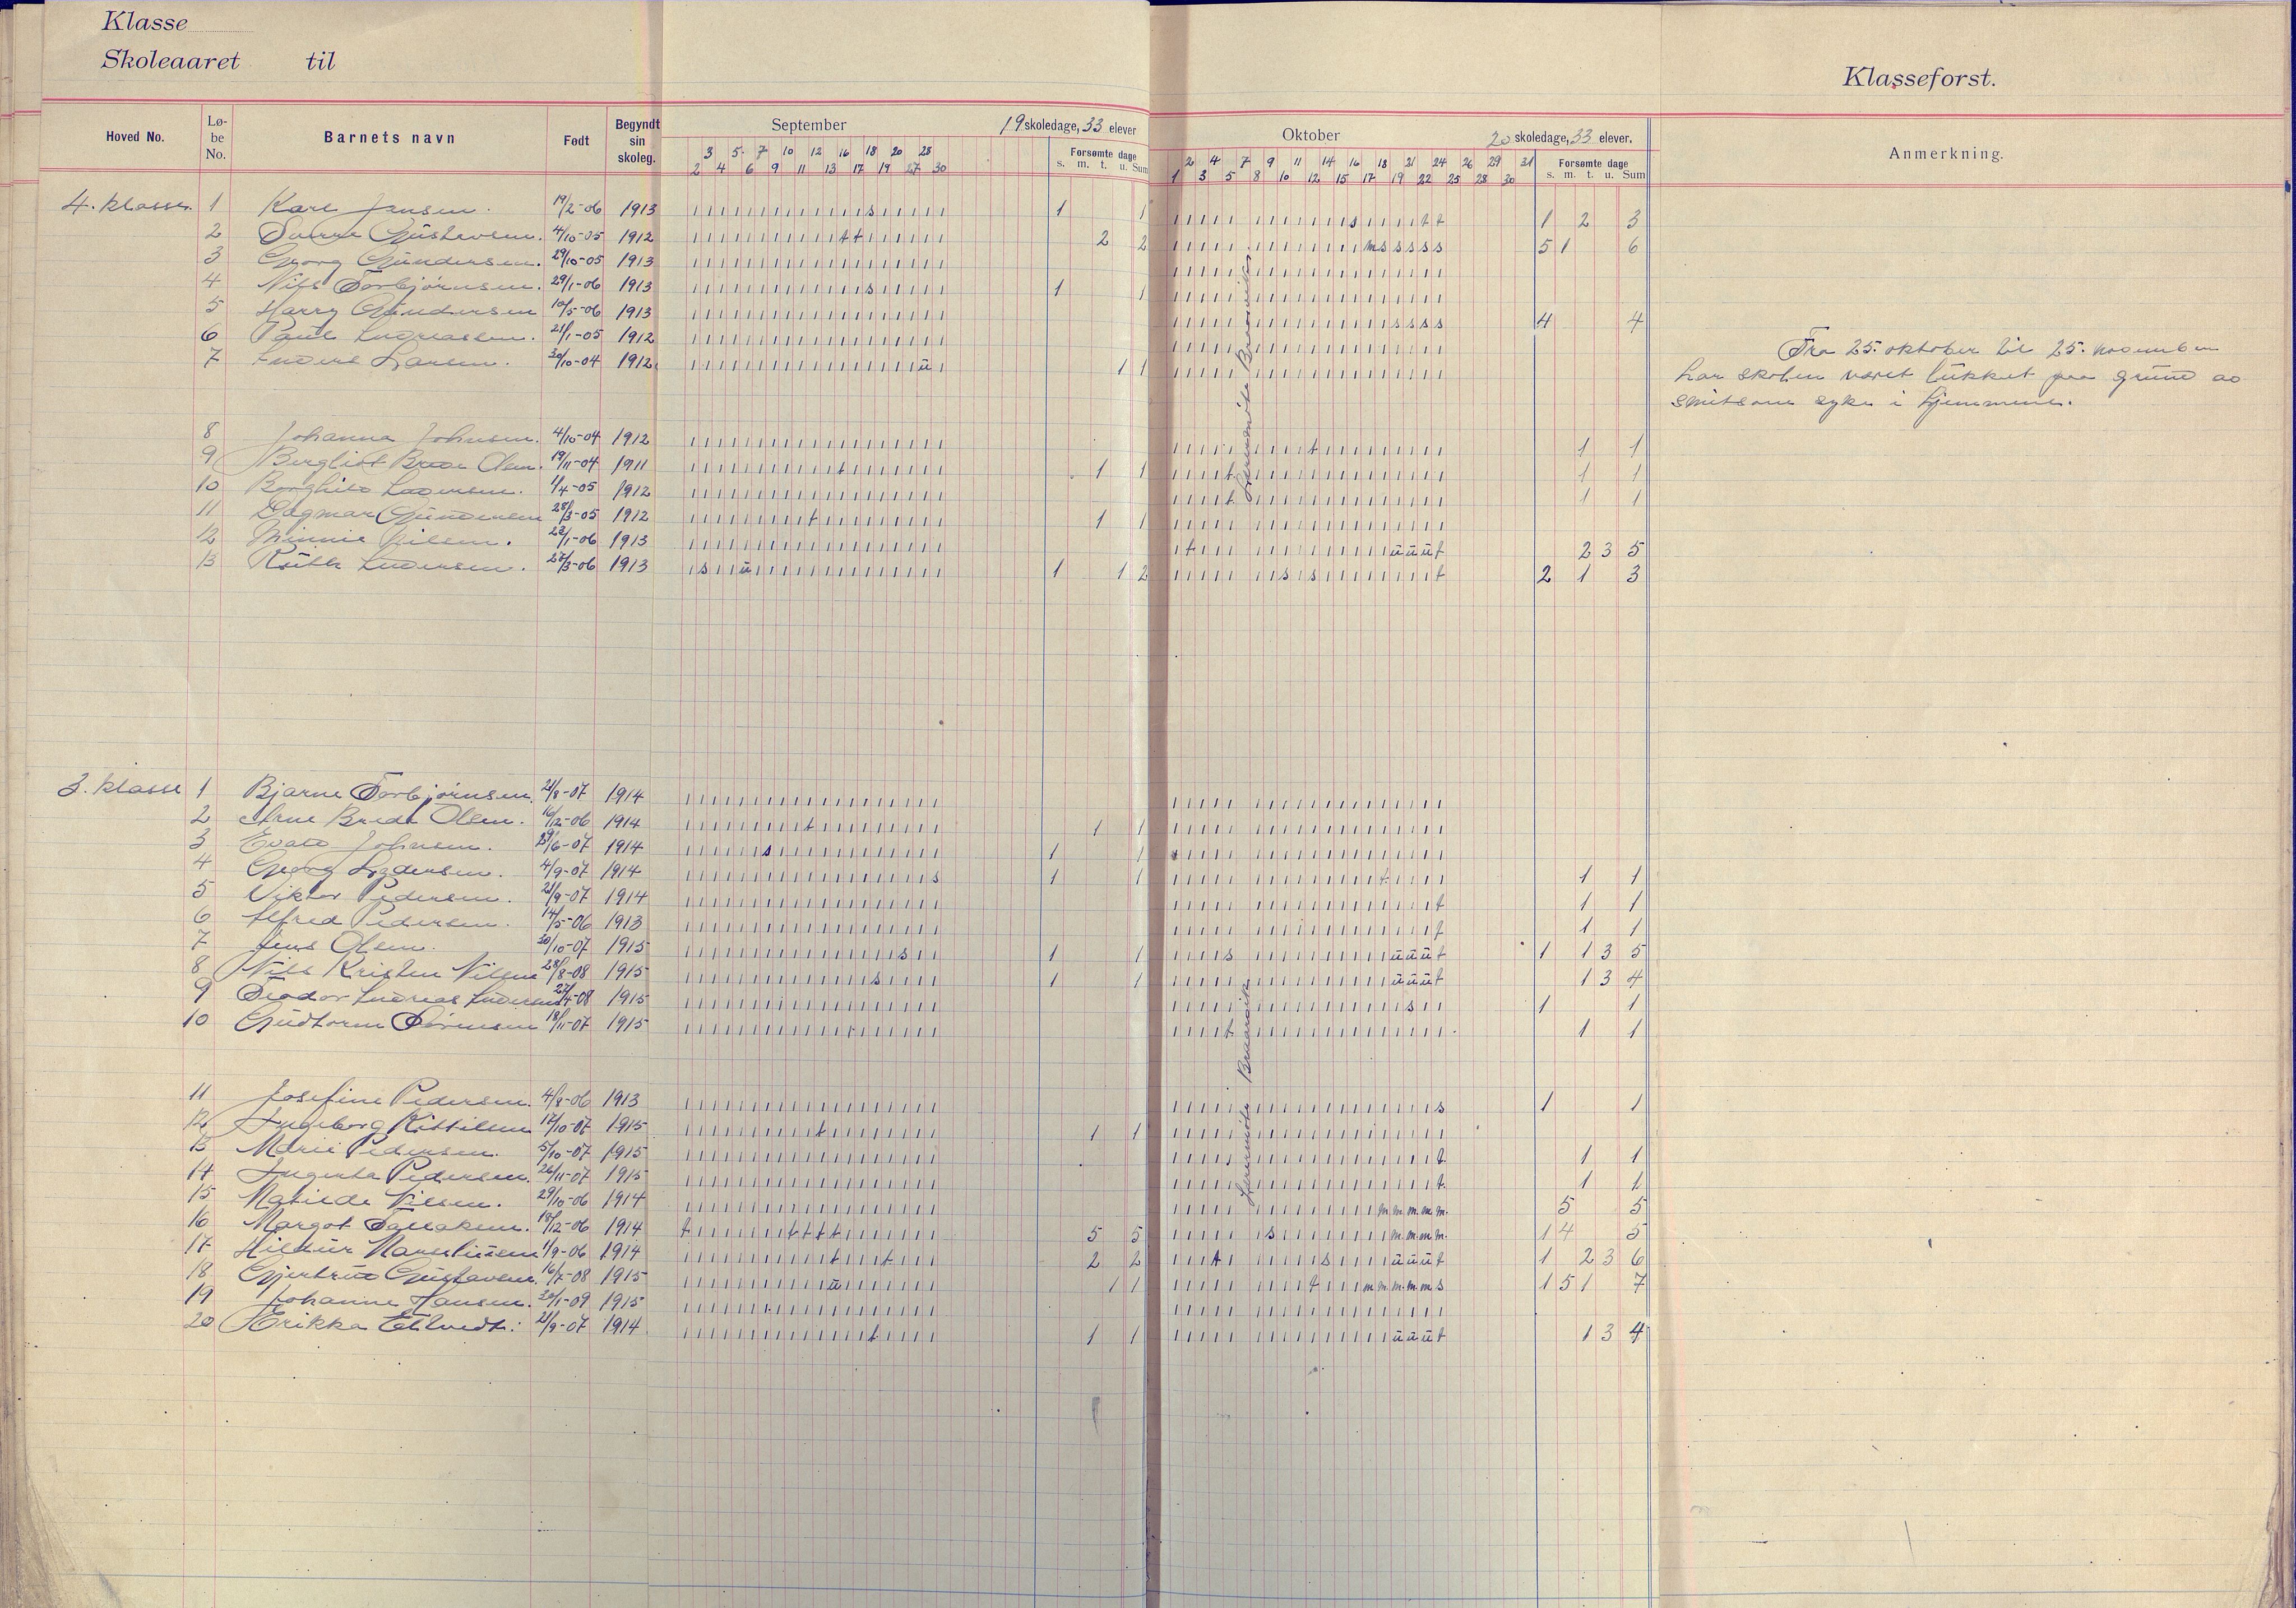 Klasse
Skoleaaret til
Klasseforst.
Hoved No. Lø-be No. Barnets navn Født Begyndt sin skoleg. September 19 skoledage, 33 elever Oktober 20 skoledage, 33 elever. Anmerkning.
Forsømte dage Forsømte dage
s. m. t. u. Sum s. m. t. u. Sum
3 5 7 10 12 16 18 20 28
2 4 6 9 11 13 17 19 27 30
2 4 7 9 11 14 16 18 21 24 26 29 31
1 3 5 8 10 12 15 17 19 22 25 28 30
4. klasse. 1 Karl Jansen. 19/2-06 1913 s 1 1 s t t 1 2 3
2 Gustavsen. 4/10-05 1912 t t 2 2 m s s s s s 5 1 6
3 Georg Gundersen. 29/10-05 1913
4 Nils Torbjørnsen. 29/1-06 1913 s 1 1
5 Harry Gundersen 10/5-06 1913 s s s s 4 4
6 Paul Andreassen. 21/1-05 1912
7 Anders Larsen. 30/10-04 1912 u 1 1
Fra 25. oktober til 25. november
har skolen været lukket paa grund av
smitsom syke i hjemmene.
8 Johanna Johnsen. 4/10-04 1912 t 1 1
9 Bergliot Brede Olsen. 19/11-04 1911 t 1 1 t 1 1
10 Borghild 1/4-05 1912 t 1 1
11 Dagmar Gundersen 28/3-05 1912 t 1 1
12 Minnie Nilsen. 23/1-06 1913 t u u u t 2 3 5
13 Ruth Andersen. 27/3-06 1913 s u 1 1 2 s s t 2 1 3
3. klasse 1 Bjarne Torbjørnsen. 21/8-07 1914
2 Arne Brede Olsen. 16/12-06 1914 t 1 1
3 Evald Johnsen. 29/6-07 1914 s 1 1
4 Georg 4/9-07 1914 s 1 1 t 1 1
5 Viktor Pedersen. 21/9-07 1914 t 1 1
6 Alfred Pedersen. 14/5-06 1913 t 1 1
7 Jens Olsen. 20/10-07 1915 s 1 1 s u u u t 1 1 3 5
8 Nils Kristen Nilsen 28/8-08 1915 s 1 1 u u u t 1 3 4
9 Teodor Andreas Andersen 27/4-08 1915 s 1 1
10 Gudtorm Sørensen 18/11-07 1915 t 1 1
11 Josefine Pedersen. 4/8-06 1913 s 1 1
12 Ingeborg Kittilsen 17/10-07 1915 t 1 1
13 Marie Pedersen. 5/10-07 1915 t 1 1
14 Augusta Pedersen. 26/11-07 1915 t 1 1
15 Matilde Nilsen. 29/10-06 1914 m m m m m. 5 5
16 Margot 19/12-06 1914 t t t t t 5 5 s m m m m. 1 4 5
17 Hildur Marseliusen 1/9-06 1914 t t 2 2 t s u u u t 1 2 3 6
18 Gjertrud Gustavsen. 16/7-08 1915 u 1 1 t m m m m m s 1 5 1 7
19 Johanne Hansen. 20/1-09 1915
20 Erikka 21/9-07 1914 t 1 1 u u u t 1 3 4
Lærermøte
Lærermøte